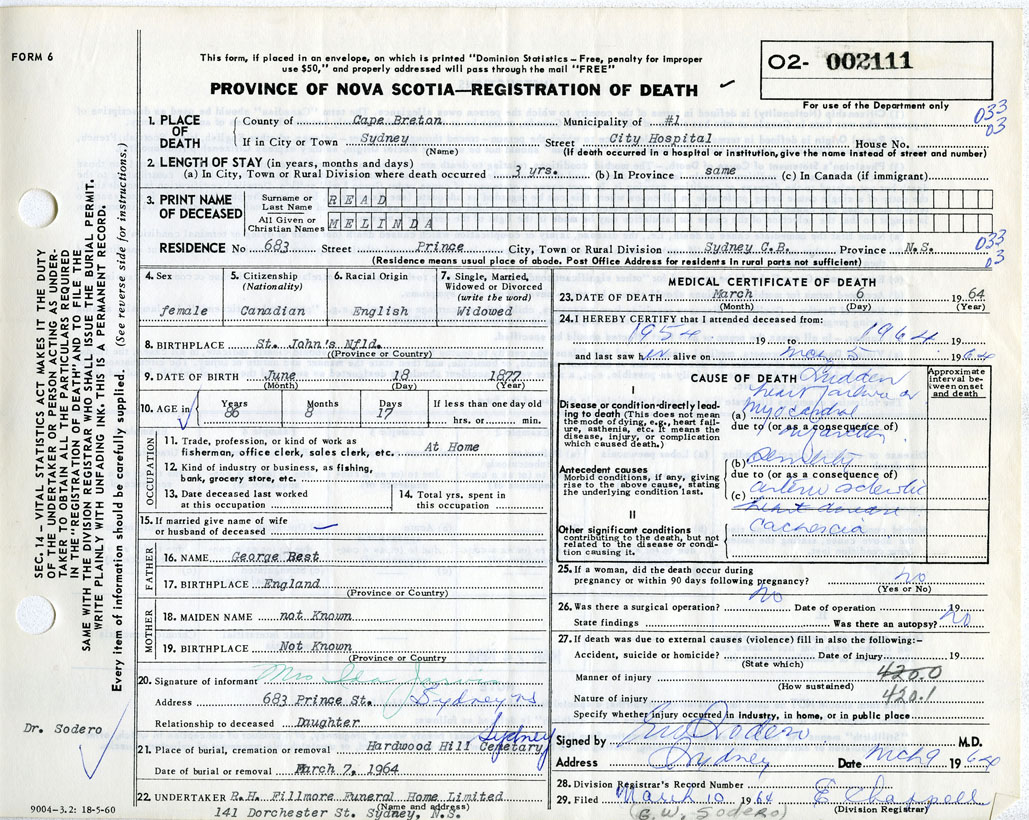 FORM 6
This form, if placed in an envelope, on which is printed "Dominion Statistics – Free, penalty for improper
use $50," and properly addressed will pass through the mail "FREE"
O2- 002111
PROVINCE OF NOVA SCOTIA—REGISTRATION OF DEATH
For use of the Department only
033
03
1. PLACE OF DEATH
County of Cape Breton Municipality of #1
If in City or Town Sydney (Name) Street City Hospital House No.
(If death occurred in a hospital or institution, give the name instead of street and number)
2. LENGTH OF STAY (in years, months and days)
(a) In City, Town or Rural Division where death occurred 3 yrs. (b) In Province same (c) In Canada (if immigrant)
3. PRINT NAME OF DECEASED
Surname or Last Name READ
All Given or Christian Names MELINDA
RESIDENCE No 683 Street Prince City, Town or Rural Division Sydney C.B. Province N.S.
033
03
(Residence means usual place of abode. Post Office Address for residents in rural parts not sufficient)
4. Sex
female
5. Citizenship
(Nationality)
Canadian
6. Racial Origin
English
7. Single, Married,
Widowed or Divorced
(write the word)
Widowed
8. BIRTHPLACE St. John's Nfld.
(Province or Country)
9. DATE OF BIRTH June 18 1877
(Month) (Day) (Year)
10. AGE in Years 86 Months 8 Days 17 If less than one day old
hrs. or min.
OCCUPATION
11. Trade, profession, or kind of work as
fisherman, office clerk, sales clerk, etc. At Home
12. Kind of industry or business, as fishing,
bank, grocery store, etc.
13. Date deceased last worked
at this occupation
14. Total yrs. spent in
this occupation
15. If married give name of wife
or husband of deceased
FATHER
16. NAME George Best
17. BIRTHPLACE England
(Province or Country)
MOTHER
18. MAIDEN NAME not Known
19. BIRTHPLACE Not Known
(Province or Country)
20. Signature of informant Mrs
Address 683 Prince St. Sydney N.S.
Relationship to deceased Daughter
21. Place of burial, cremation or removal Hardwood Hill Cemetary Sydney
Date of burial or removal March 7, 1964
22. UNDERTAKER R.H. Fillmore Funeral Home Limited
(Name and address)
141 Dorchester St. Sydney, N.S.
MEDICAL CERTIFICATE OF DEATH
23. DATE OF DEATH March 6 1964
(Month) (Day) (Year)
24. I HEREBY CERTIFY that I attended deceased from:
1954 19 to 1964
and last saw her alive on Mch. 5 1964
CAUSE OF DEATH Sudden
Approximate interval between onset and death
I
heart failure or
Disease or condition directly leading to death (This does not mean the mode of dying, e.g., heart failure, asthenia, etc. It means the disease, injury, or complication which caused death.)
(a) myocardial
due to (or as a consequence of)
infarction
Antecedent causes
Morbid conditions, if any, giving rise to the above cause, stating the underlying condition last.
(b) Senility
due to (or as a consequence of)
(c) arterio sclerotic
heart disease
II
Other significant conditions
contributing to the death, but not related to the disease or condition causing it.
Cachexia
25. If a woman, did the death occur during
pregnancy or within 90 days following pregnancy? no
(Yes or No)
26. Was there a surgical operation? no Date of operation 19
State findings Was there an autopsy? no
27. If death was due to external causes (violence) fill in also the following:–
Accident, suicide or homicide? Date of injury 19
(State which)
Manner of injury 420.0
(How sustained)
Nature of injury 420.1
Specify whether injury occurred in industry, in home, or in public place
Signed by Sodero M.D.
Address Sydney Date Mch 9 1964
28. Division Registrar's Record Number
29. Filed March 10 1964 E Chappell
(Division Registrar)
(G.W. SODERO)
SEC. 14 – VITAL STATISTICS ACT MAKES IT THE DUTY
OF THE UNDERTAKER OR PERSON ACTING AS UNDER-
TAKER TO OBTAIN ALL THE PARTICULARS REQUIRED
IN THE "REGISTRATION OF DEATH" AND TO FILE THE
SAME WITH THE DIVISION REGISTRAR WHO SHALL ISSUE THE BURIAL PERMIT.
WRITE PLAINLY WITH UNFADING INK. THIS IS A PERMANENT RECORD.
Every item of information should be carefully supplied. (See reverse side for instructions.)
Dr. Sodero
9004-3.2: 18-5-60